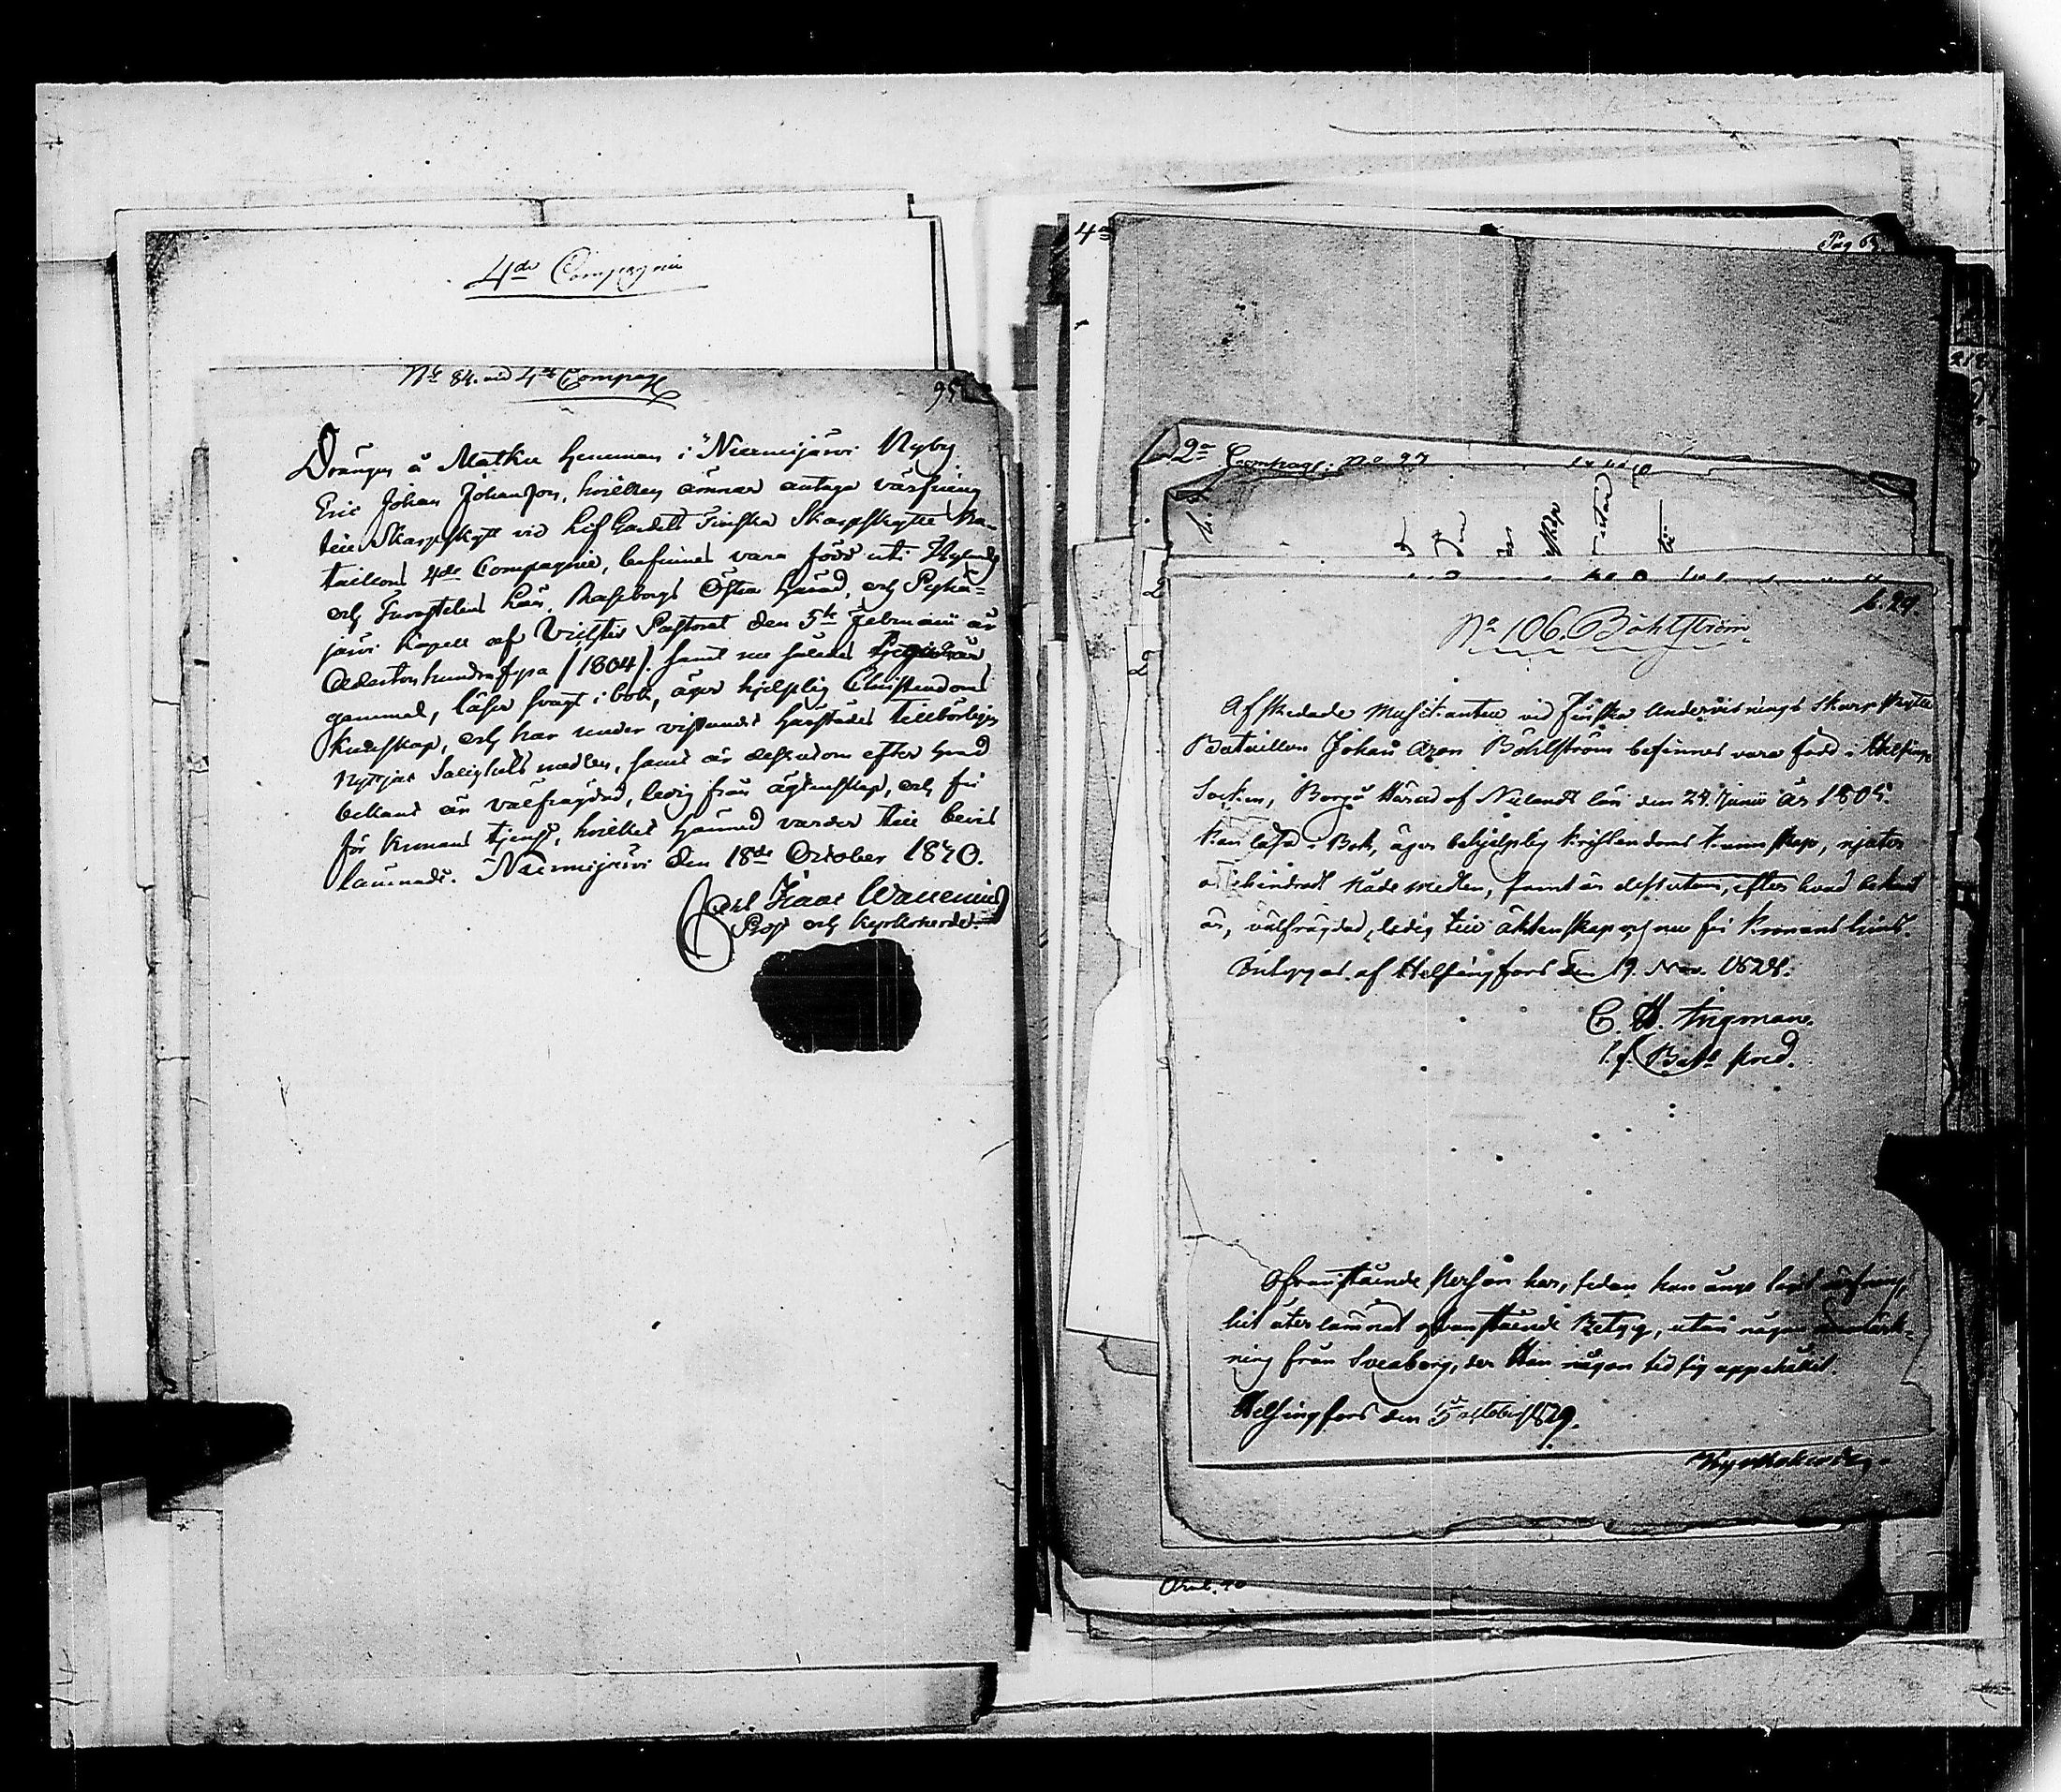 4de Compagnie
No 84. vid 4de Compag
95
Drängen å Matku hemman i Nurmijärvi Nyby
Eric Johan Johansson, hvilken ämnar antaga värfning
till Skarpskytt vid Lif Gardets Finska Skarpskytte Ba-
taillons 4de Compagnie, befinnes vara född uti Nylands
och Tavastehus Län, Raseborgs Östra Härad, och Pyhä-
järvi Kapell af Vichtis Pastorat den 5te Februarii år
Adertonhundrafyra /1804/. samt nu således
gammal, läser svagt i bok, äger hjelplig Christendoms
kundskap, och har under vistandet härstädes tillbörligen
nyttjat Salighets medlen, samt är dessutom efter hvad
bekant är välfrägdad, ledig från ägtenskap, och fri
för Kronans tjenst, hvilket härmed varder till bevis
lämnadt. Nurmijärvi den 18de October 1830.
Carl Isaac Wallenius
Prost och Kyrkoherde.
4de
Pag 63
2a Compagn: No 97
L. 29
No 106. Böhlström
Afskedade Musikanten vid Finska Undervisnings Skarpskytte
Bataillon Johan Aron Böhlström befinnes vara född i Helsinge
Socken, Borgå Härad af Nylands län den 24 Junii år 1805.
Kan läsa i Bok, äger behjelplig Kristendoms Kunnskap, njuter
obehindradt Nåde medlen, samt är dessutom, efter hvad bekant
är, välfrägdad, ledig till äktenskap och nu fri Kronans tjenst.
Betygas af Helsingfors den 19. Nov. 1828.
C. H. Ingman.
t. f. Bat. pred.
Ofvanstående Person har, sedan han ånyo tagit värfning,
hit återlämnat ofvanstående Betyg, utan någon anmärk-
ning från Sveaborg, der Han någon tid sig uppehållit.
Helsingfors den 5 october 1829.
Kyrkoherde.